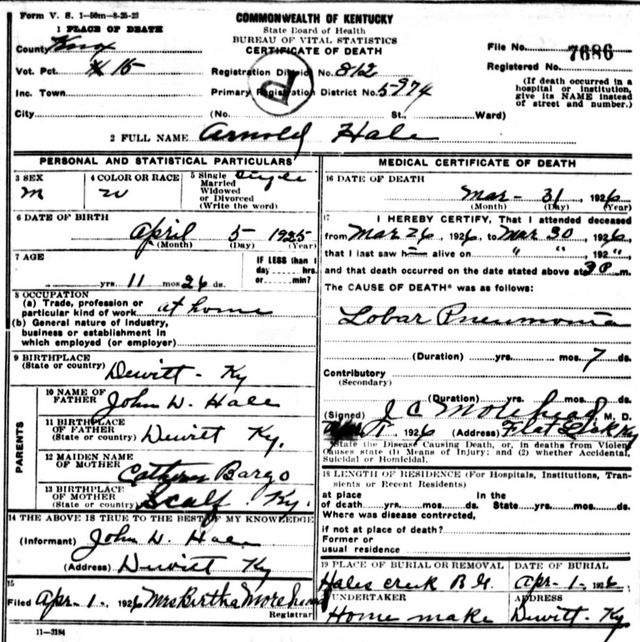 Form V. S. 1-50m-8-25-23
COMMONWEALTH OF KENTUCKY
State Board of Health
BUREAU OF VITAL STATISTICS
CERTIFICATE OF DEATH
1 PLACE OF DEATH
County Knox
Vot. Pct. # 15
Inc. Town
City
Registration District No. 812
Primary Registration District No. 5974
(No. St., Ward)
File No. 7686
Registered No.
(If death occurred in a hospital or institution, give its NAME instead of street and number.)
2 FULL NAME Arnold Hale
PERSONAL AND STATISTICAL PARTICULARS
3 SEX
m
4 COLOR OR RACE
w
5 Single Single
Married
Widowed
or Divorced
(Write the word)
6 DATE OF BIRTH
April 5 1925
(Month) (Day) (Year)
7 AGE
yrs. 11 mos 26 ds.
IF LESS than 1
day hrs.
or min.
8 OCCUPATION
(a) Trade, profession or
particular kind of work at home
(b) General nature of industry,
business or establishment in
which employed (or employer)
9 BIRTHPLACE
(State or country) Dewitt - Ky
PARENTS
10 NAME OF
FATHER John D. Hale
11 BIRTHPLACE
OF FATHER
(State or country) Dewitt Ky.
12 MAIDEN NAME
OF MOTHER Bargo
13 BIRTHPLACE
OF MOTHER
(State or country) Scalf Ky.
14 THE ABOVE IS TRUE TO THE BEST OF MY KNOWLEDGE
(Informant) John D. Hale
(Address) Dewitt Ky
15
Filed Apr 1. 1926 Mrs Birtha Morehead
Registrar
11-3184
MEDICAL CERTIFICATE OF DEATH
16 DATE OF DEATH
Mar - 31 1926
(Month) (Day) (Year)
17 I HEREBY CERTIFY, That I attended deceased
from Mar 26, 1926, to Mar 30, 1926,
that I last saw h alive on " ", 192 ",
and that death occurred on the date stated above at m.
The CAUSE OF DEATH* was as follows:
Lobar Pneumonia
(Duration) yrs. mos. 7 ds.
Contributory
(Secondary)
(Duration) yrs. mos. ds.
(Signed) J C Morehead, M. D.
1926 (Address) Flat Lick Ky
*State the Disease Causing Death, or, in deaths from Violent
Causes state (1) Means of Injury; and (2) whether Accidental,
Suicidal or Homicidal.
18 LENGTH OF RESIDENCE (For Hospitals, Institutions, Tran-
sients or Recent Residents)
at place In the
of death yrs. mos. ds. State yrs. mos. ds.
Where was disease contracted,
if not at place of death?
Former or
usual residence
19 PLACE OF BURIAL OR REMOVAL
Hales Creek B. G.
DATE OF BURIAL
Apr - 1 - 1926
UNDERTAKER
Home make
ADDRESS
Dewitt - Ky